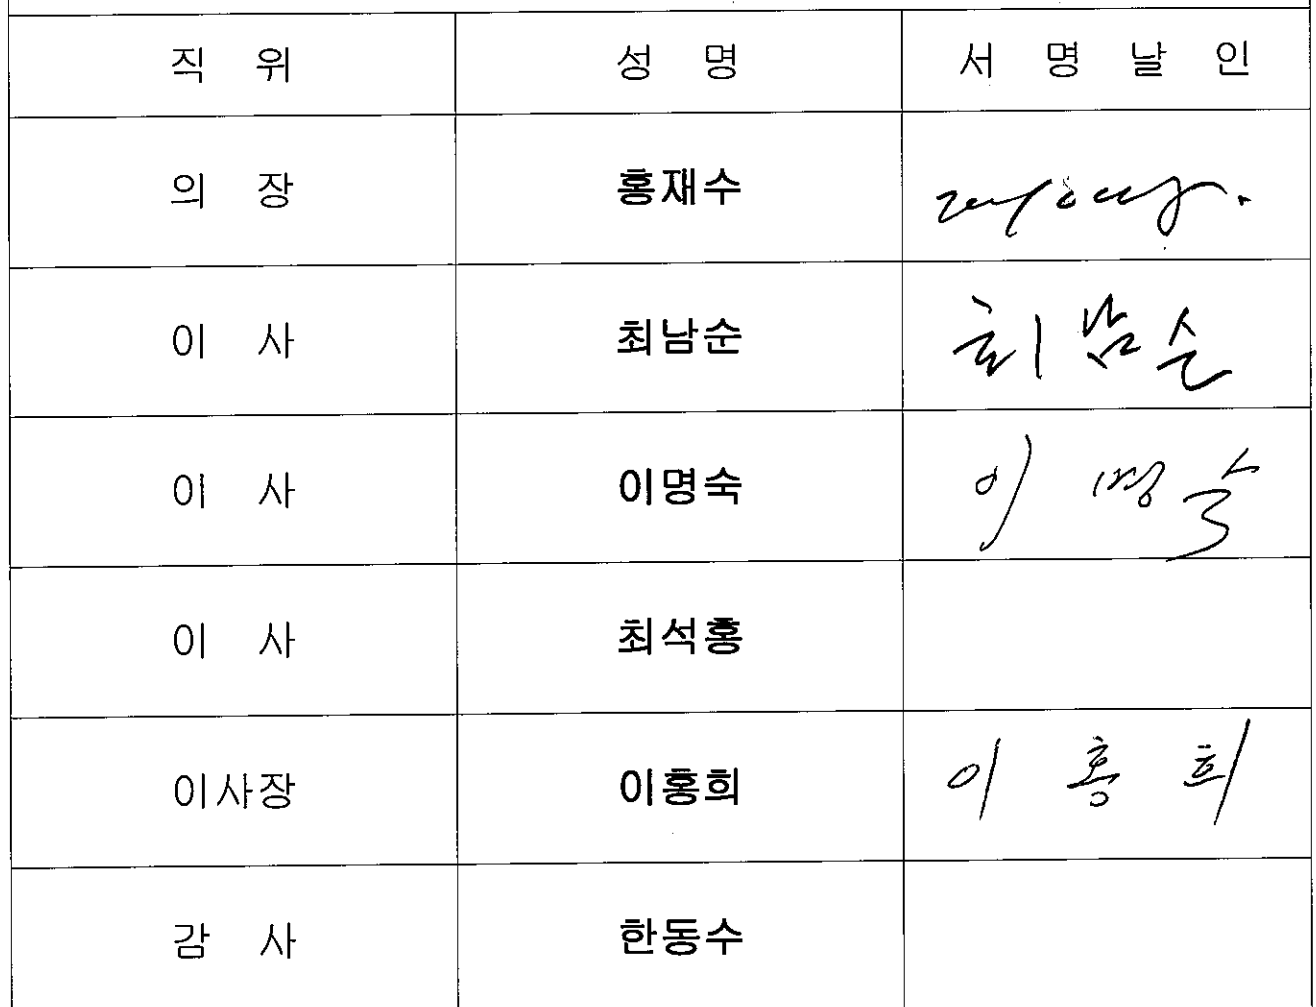 직 위 성 명 서 명 날 인
의 장 홍재수
이 사 최남순 최남순
이 사 이명숙 이명숙
이 사 최석홍
이사장 이홍희 이홍희
감 사 한동수